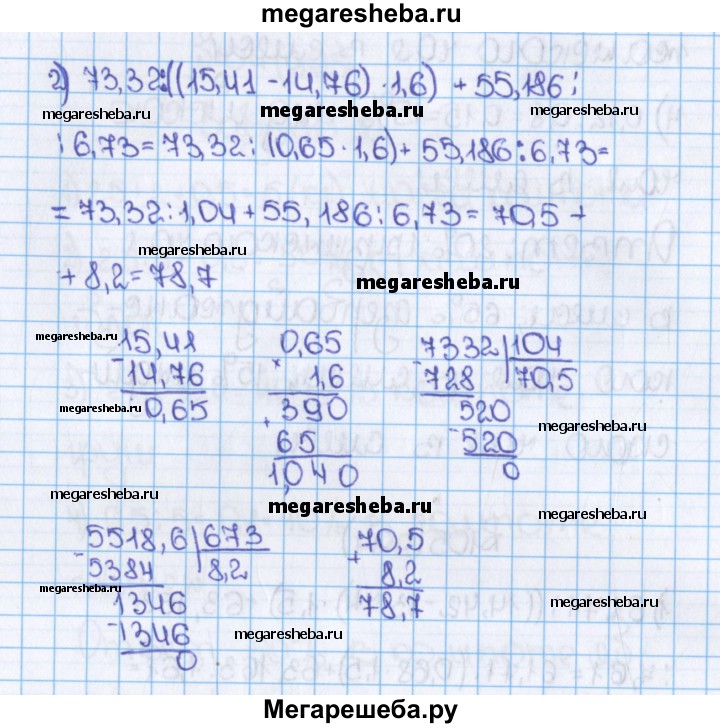 megaresheba.ru
2) 73,32:((15,41 -14,76) ·1,6) + 55,186:
megaresheba.ru megaresheba.ru megaresheba.ru
:6,73=73,32:(0,65·1,6)+55,186:6,73=
=73,32:1,04+55,186:6,73=70,5+
megaresheba.ru megaresheba.ru
+8,2=78,7
megaresheba.ru
megaresheba.ru
15,41 0,65 7332 104
-14,76 × 1,6 -728 70,5
0,65 +390 520
megaresheba.ru megaresheba.ru
65 -520
1,040 0
megaresheba.ru
megaresheba.ru
megaresheba.ru
5518,6 673 70,5
-5384 8,2 + 8,2
megaresheba.ru
1346 78,7
megaresheba.ru
-1346
megaresheba.ru
0
Мегарешеба.ру